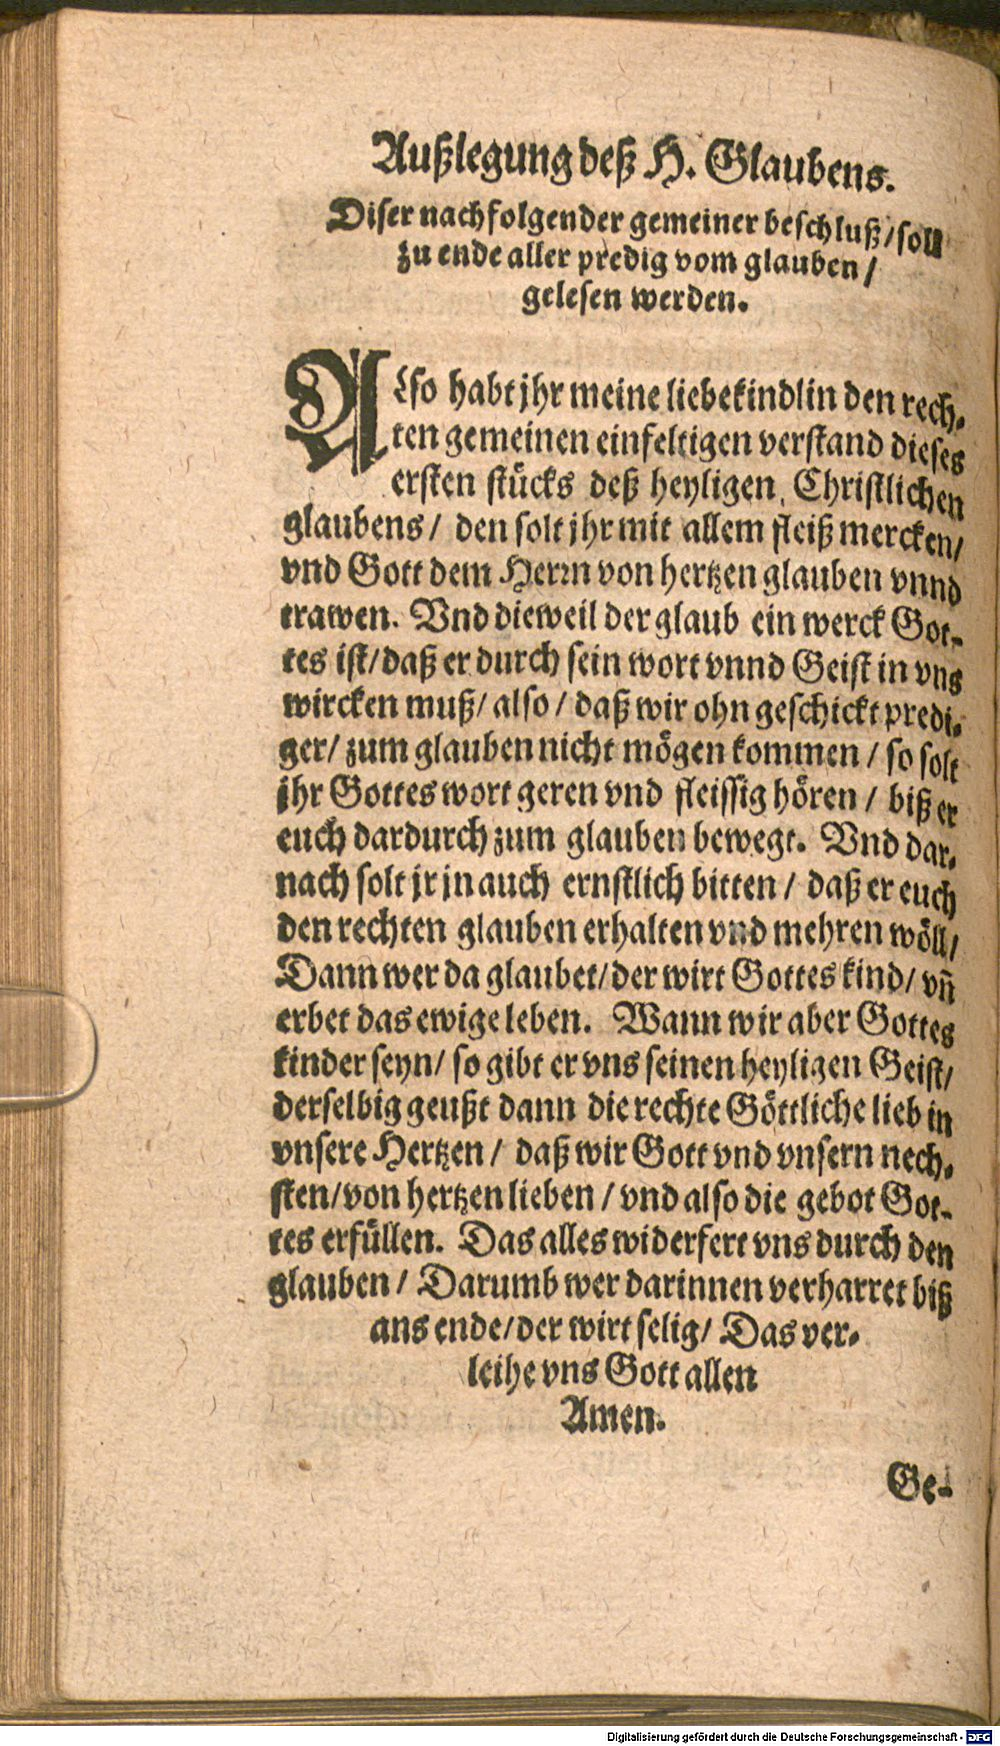 Außlegung deß H. Glaubens.
Diser nachfolgender gemeiner beschluß/ soll
zu ende aller predig vom glauben/
gelesen werden.
Also habt jhr meine liebe kindlin den rech-
ten gemeinen einfeltigen verstand dieses
ersten stücks deß heyligen, Christlichen
glaubens/ den solt jhr mit allem fleiß mercken/
vnd Gott dem Herrn von hertzen glauben vnnd
trawen. Vnd dieweil der glaub ein werck Got-
tes ist/ daß er durch sein wort vnnd Geist in vns
wircken muß/ also/ daß wir ohn geschickt predi-
ger/ zum glauben nicht mögen kommen/ so solt
jhr Gottes wort geren vnd fleissig hören/ biß er
euch dardurch zum glauben bewegt. Vnd dar-
nach solt jr jn auch ernstlich bitten/ daß er euch
den rechten glauben erhalten vnd mehren wöll/
Dann wer da glaubet/ der wirt Gottes kind/ vn̄
erbet das ewige leben. Wann wir aber Gottes
kinder seyn/ so gibt er vns seinen heyligen Geist/
derselbig geußt dann die rechte Göttliche lieb in
vnsere Hertzen/ daß wir Gott vnd vnsern nech-
sten/ von hertzen lieben/ vnd also die gebot Got-
tes erfüllen. Das alles widerfert vns durch den
glauben/ Darumb wer darinnen verharret biß
ans ende/ der wirt selig/ Das ver-
leihe vns Gott allen
Amen.
Ge-
Digitalisierung gefördert durch die Deutsche Forschungsgemeinschaft - DFG